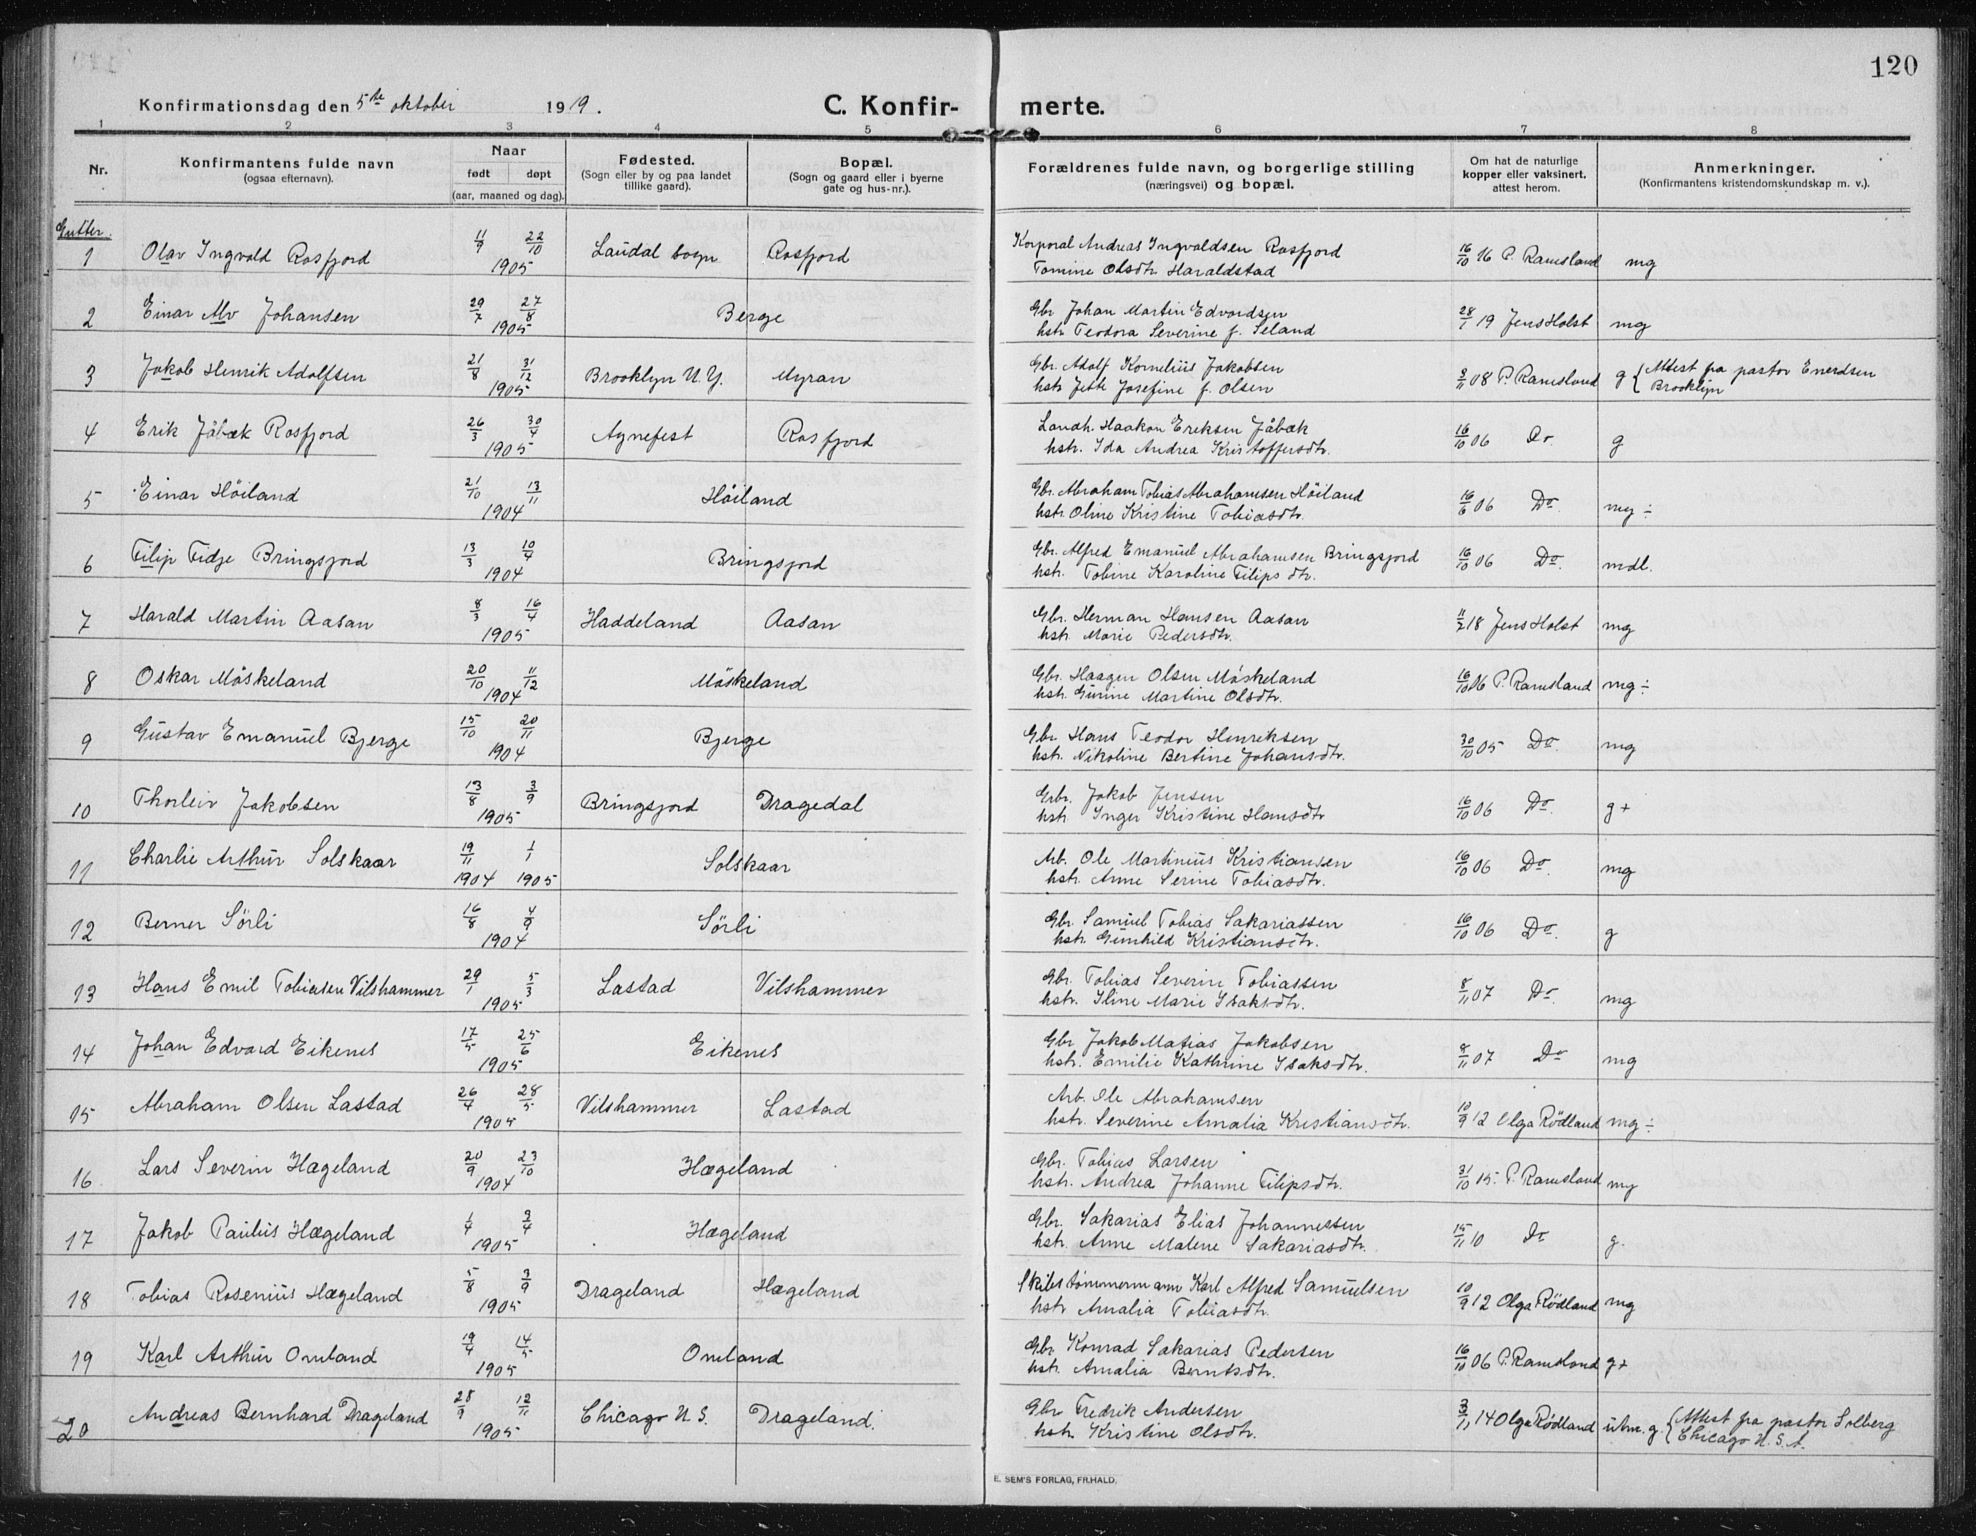 120
Konfirmationsdag den 5te oktober 1919.
C. Konfirmerte.
1 2 3 4 5 6 7 8
Nr.
Konfirmantens fulde navn
(ogsaa efternavn).
Naar
født døpt
(aar, maaned og dag).
Fødested.
(Sogn eller by og paa landet
tillike gaard).
Bopæl.
(Sogn og gaard eller i byerne
gate og hus-nr.).
Forældrenes fulde navn, og borgerlige stilling
(næringsvei) og bopæl.
Om hat de naturlige
kopper eller vaksinert.
attest herom.
Anmerkninger.
(Konfirmantens kristendomskundskap m. v.).
Gutter.
1 Olav Ingvald Rosfjord 11/9 22/10 1905 Laudal sogn Rosfjord Korporal Andreas Ingvaldsen Rosfjord 16/10 16 P. Ramsland mg
Tomine Olsdtr. Haraldstad
2 Einar Alv Johansen 29/7 27/8 1905 Berge Gbr. Johan Martin Edvardsen 28/1 19 Jens Holst mg
hstr. Teodora Severine f. Seland
3 Jakob Henrik Adolfsen 21/8 31/12 1905 Brooklyn N.Y. Myran Gbr. Adolf Kornelius Jakobsen 08 P. Ramsland g { Attest fra pastor Enerdsen
hstr. Josefine f. Olsen Brooklyn
4 Erik Jåbæk Rosfjord 26/3 30/4 1905 Agnefest Rosfjord Landh. Haakon Eriksen Jåbæk 16/10 06 Do g
hstr. Ida Andrea Kristoffersdtr.
5 Einar Høiland 21/10 13/11 1904 Høiland Gbr. Abraham Tobias Abrahamsen Høiland 16/6 06 Do. mg ÷
hstr. Oline Kristine Tobiasdtr.
6 Filip Fidje Bringsjord 13/3 10/4 1904 Bringsjord Gbr. Alfred Emanuel Abrahamsen Bringsjord 16/10 06 Do. mdl.
hstr. Tobine Karoline Filipsdtr.
7 Harald Martin Aasan 8/3 16/4 1905 Haddeland Aasan Gbr. Herman Hansen Aasan 11/2 18 Jens Holst mg
hstr. Marie Pedersdtr.
8 Oskar Møskeland 20/10 11/12 1904 Møskeland Gbr. Haagen Olsen Møskeland 16/10 06 P. Ramsland mg ÷
hstr. Gurine Martine Olsdtr.
9 Gustav Emanuel Bjerge 15/10 20/11 1904 Bjerge Gbr. Hans Teodor Henriksen 30/10 05 Do. mg
hstr. Nikoline Bertine Johansdtr.
10 Thorleiv Jakobsen 13/8 3/9 1905 Bringsjord Dragedal Grbr. Jakob Jensen 16/10 06 Do. g +
hstr. Inger Kristine Hansdtr
11 Charlie Arthur Solskaar 19/11 1904 1/1 1905 Solskaar Arb. Ole Martinius Kristiansen 16/10 06 Do. mg
hstr. Anne Serine Tobiasdtr.
12 Berner Sørli 16/8 4/9 1904 Sørli Gbr. Samuel Tobias Sakariassen 16/10 06 Do. g
hstr. Gunhild Kristiansdtr.
13 Hans Emil Tobiasen Vilshammer 29/1 5/3 1905 Lastad Vilshammer Gbr. Tobias Severin Tobiassen 8/11 07 Do. mg
hstr. Iline Marie Isaksdtr.
14 Johan Edvard Eikenes 17/5 25/6 1905 Eikenes Gbr Jakob Matias Jakobsen 8/11 07 Do mg
hstr. Emilie Kathrine Isaksdtr.
15 Abraham Olsen Lastad 26/4 28/5 1905 Vilshammer Lastad Arb. Ole Abrahamsen 10/9 12 Olga Rødland mg ÷
hstr. Severine Amalia Kristiansdtr.
16 Lars Severin Hægeland 20/9 23/10 1904 Hægeland Gbr. Tobias Larsen 31/10 15. P. Ramsland mg
hstr. Andrea Johanne Filipsdtr.
17 Jakob Paulus Hægeland 1/4 9/4 1905 Hægeland Gbr. Sakarias Elias Johannessen 15/11 10 Do g.
hstr. Anne Malene Sakariasdtr.
18 Tobias Rosenius Hægeland 5/8 3/9 1905 Drageland Hægeland Skibstømmermann Karl Alfred Samuelsen 10/9 12 Olga Rødland mg
hstr Amalia Tobiasdtr.
19 Karl Arthur Omland 19/4 14/5 1905 Omland Gbr Konrad Sakarias Pedersen 16/10 06 P. Ramsland g +
hstr. Amalia Berntsdtr.
20 Andreas Bernhard Drageland 28/9 12/11 1905 Chicago N.S. Drageland. Gbr Fredrik Andersen 14 Olga Rødland utm. g. { Attest fra pastor Solberg
hstr. Kristine Olsdtr. Chicago N.S.A.
E. SEM'S FORLAG, FR.HALD.